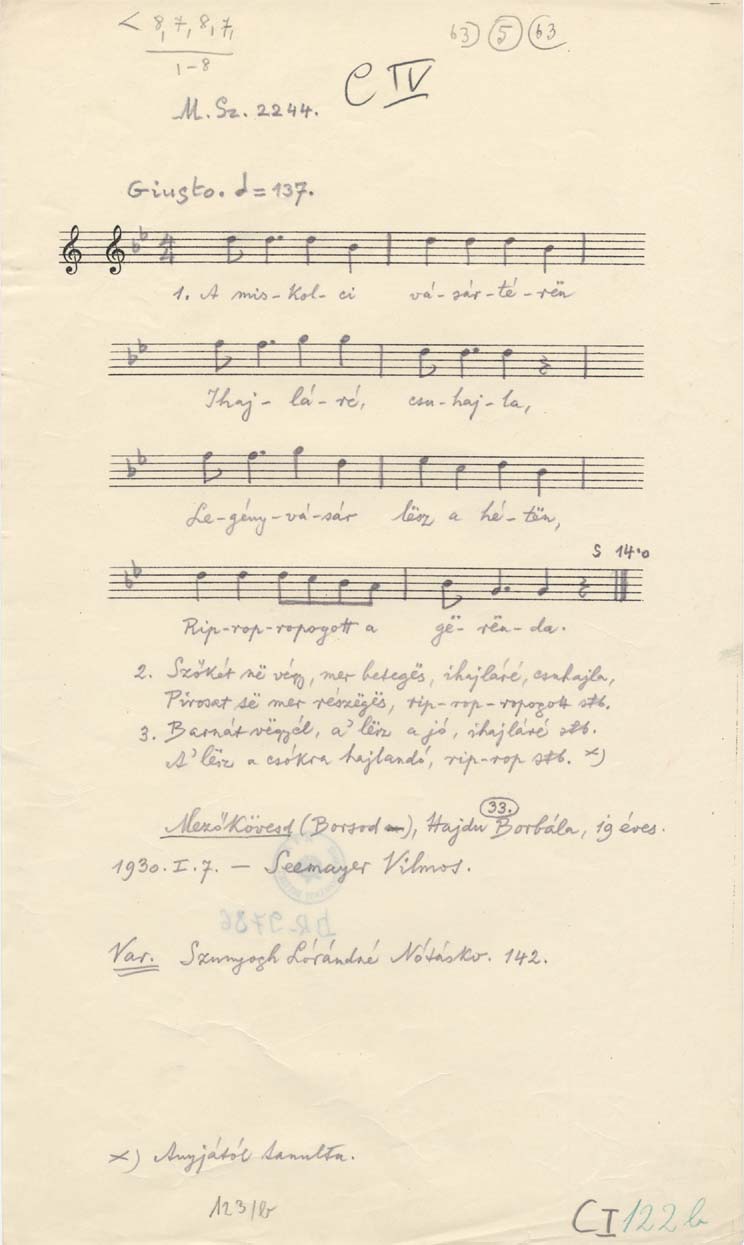 < 8, 7, 8, 7,
1-8
63) 5 63
C IV
M. Sz. 2244.
Giusto. = 137.
4 4
1. A mis-kol-ci vá-sár-té-rën
Ihaj-lá-ré, csu-haj-la,
Le-gény-vá-sár lësz a hé-tën,
S 14.0
Rip-rop-ropogott a gë-rën-da.
2. Szőkét në végy, mer betegës, ihajláré, csuhajla,
Pirosat së mer részëgës, rip-rop-ropogott stb.
3. Barnát vëgyél, a' lësz a jó, ihajláré stb.
A' lësz a csókra hajlandó, rip-rop stb. x)
33.
Mezőkövesd (Borsod), Hajdu Borbála, 19 éves.
1930. I. 7. — Seemayer Vilmos.
Var. Szunyogh Lórándné Nótásk. 142.
x) Anyjától tanulta.
123/b
CI 122b